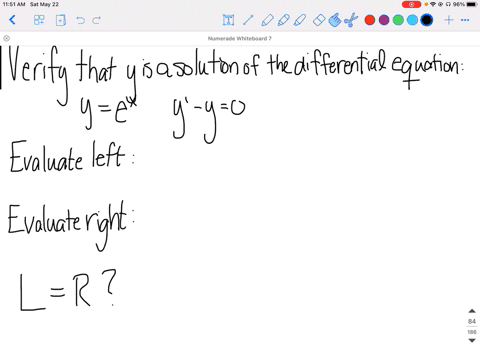 11:51 AM Sat May 22
96%
Numerade Whiteboard 7
Verify that y is a solution of the differential equation:
y = eˣ y' - y = 0
Evaluate left:
Evaluate right:
L = R ?
84
186